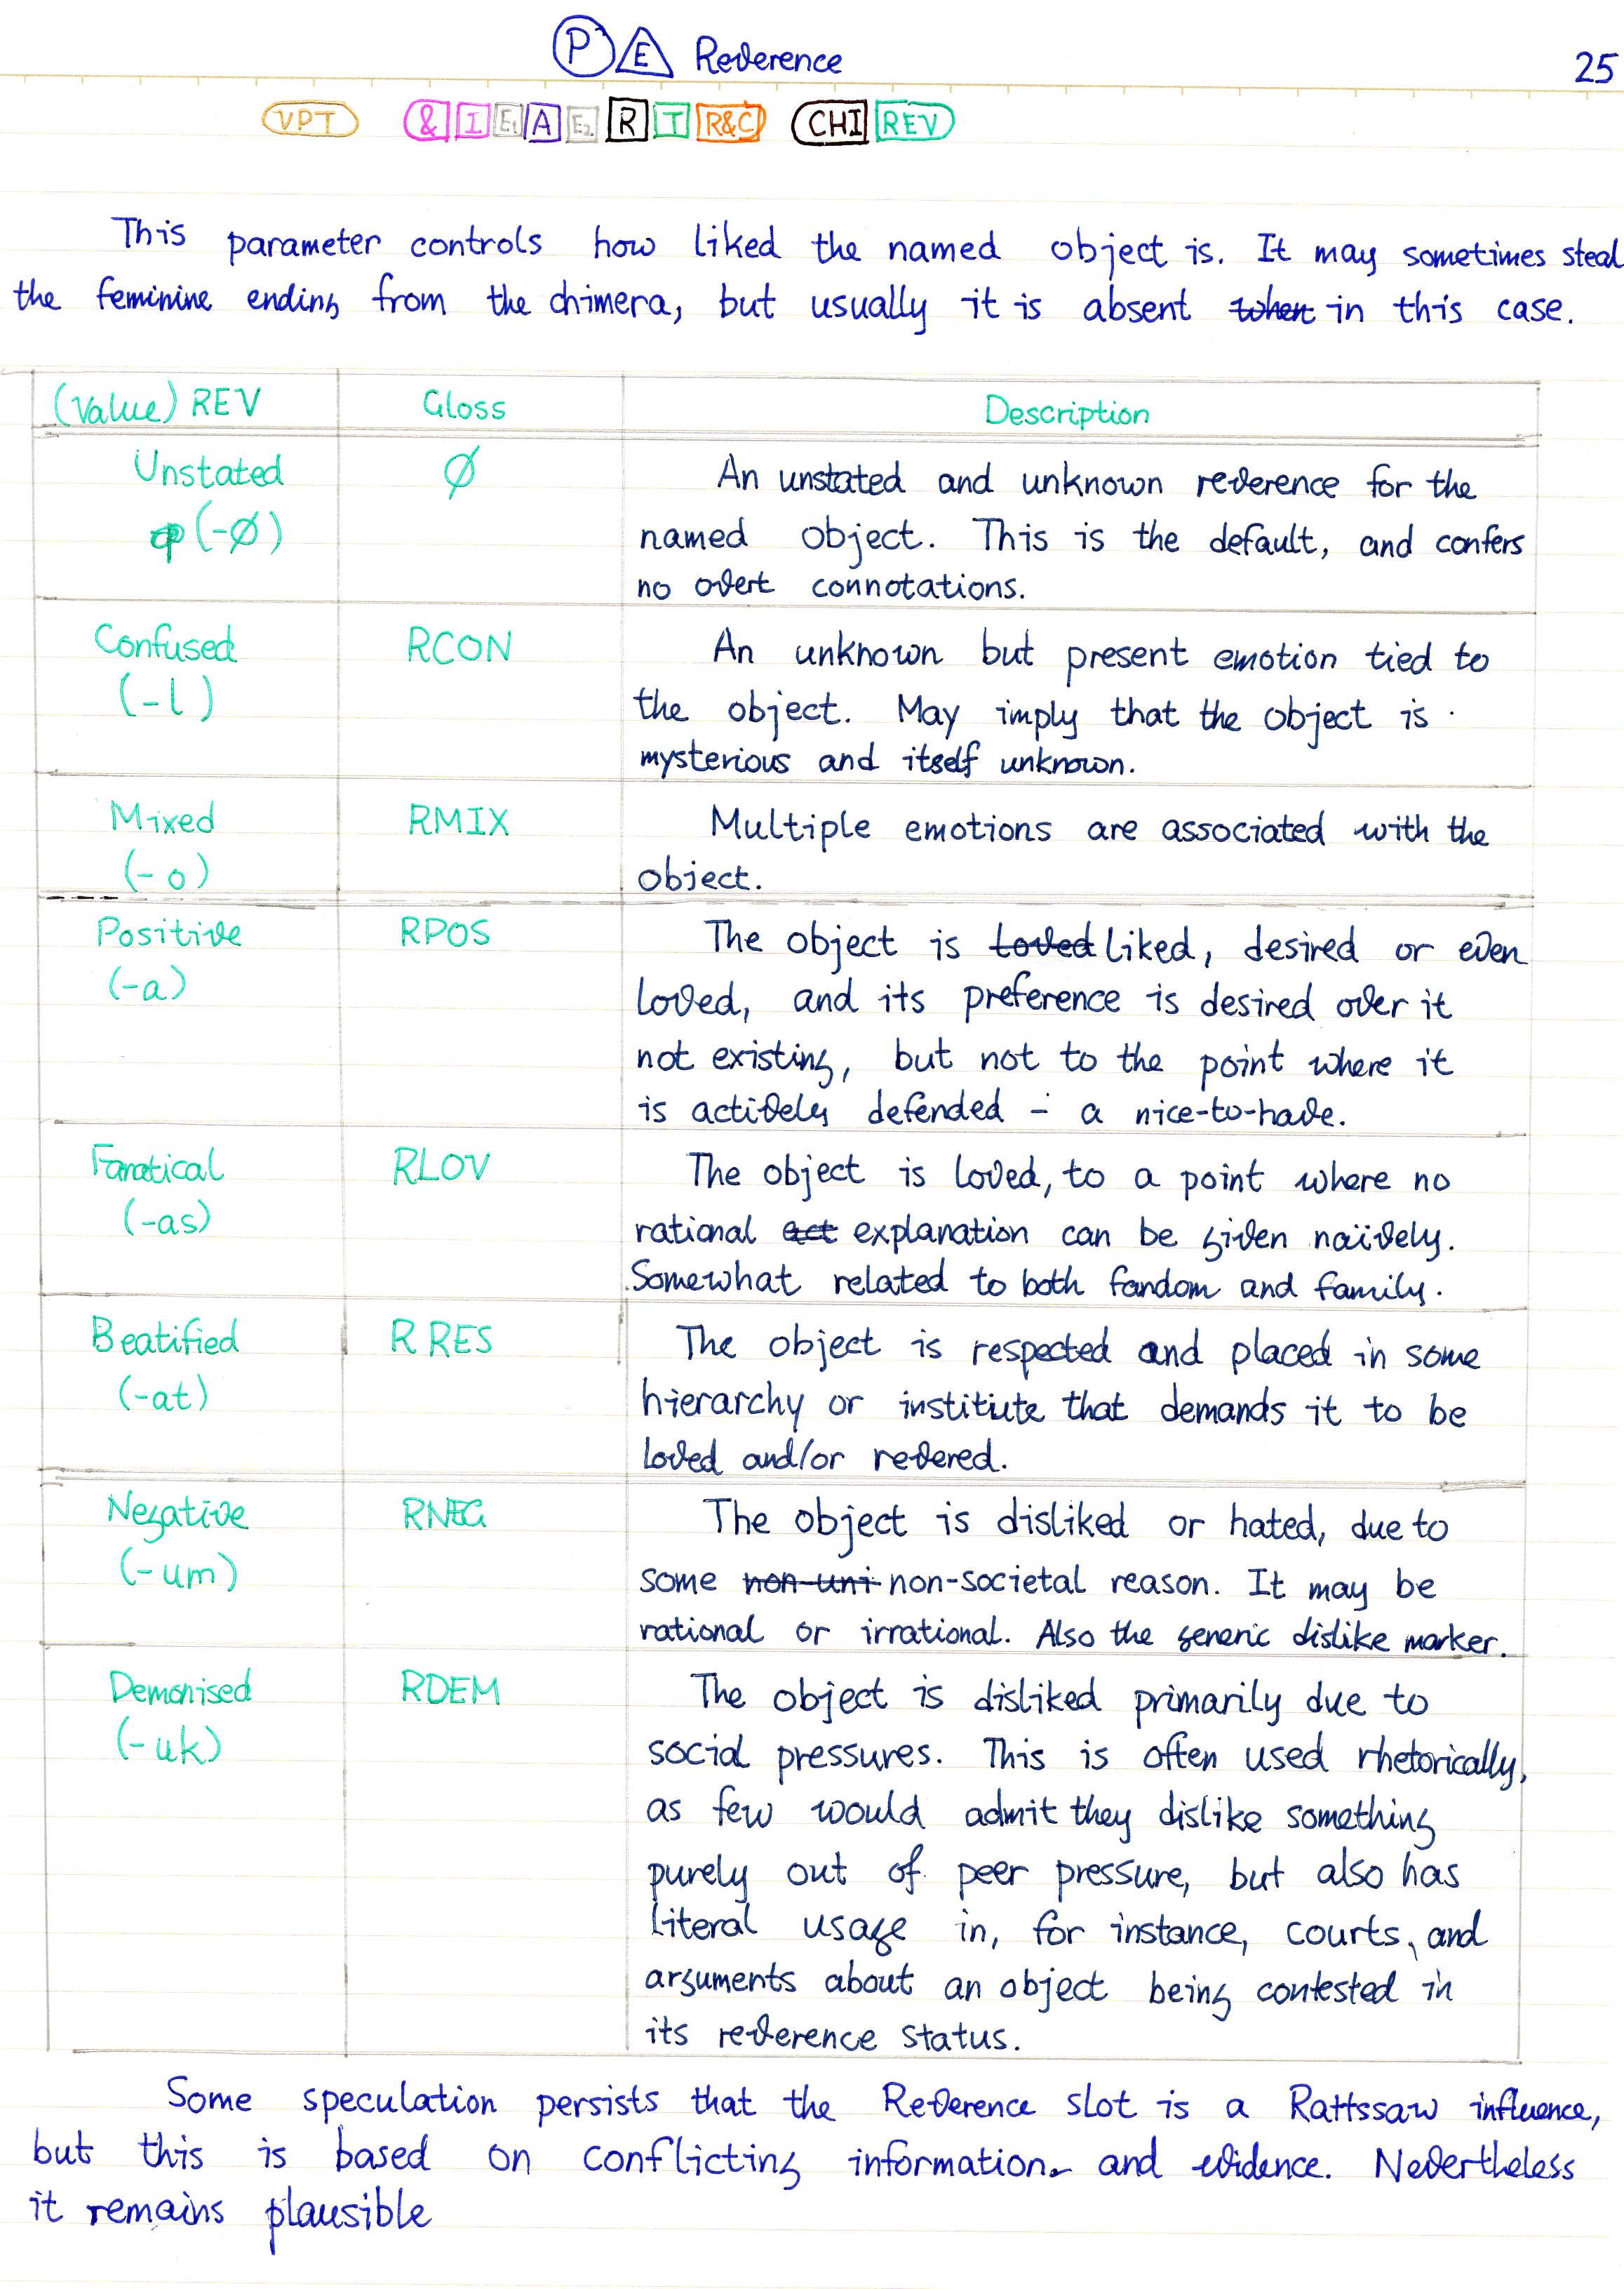 P E Reverence
25
VPT & I E₁ A E₂ R T R&C CHI REV
This parameter controls how liked the named object is. It may sometimes steal
the feminine ending from the chimera, but usually it is absent when in this case.
(Value) REV Gloss Description
Unstated ∅ An unstated and unknown reverence for the
(-∅) named object. This is the default, and confers
no overt connotations.
Confused RCON An unknown but present emotion tied to
(-l) the object. May imply that the object is
mysterious and itself unknown.
Mixed RMIX Multiple emotions are associated with the
(-o) object.
Positive RPOS The object is loved liked, desired or even
(-a) loved, and its preference is desired over it
not existing, but not to the point where it
is actively defended - a nice-to-have.
Fanatical RLOV The object is loved, to a point where no
(-as) rational act explanation can be given naïvely.
Somewhat related to both fandom and family.
Beatified RRES The object is respected and placed in some
(-at) hierarchy or institiute that demands it to be
loved and/or revered.
Negative RNEG The object is disliked or hated, due to
(-um) some non-uni non-societal reason. It may be
rational or irrational. Also the generic dislike marker.
Demonised RDEM The object is disliked primarily due to
(-uk) social pressures. This is often used rhetorically,
as few would admit they dislike something
purely out of peer pressure, but also has
literal usage in, for instance, courts, and
arguments about an object being contested in
its reverence status.
Some speculation persists that the Reverence slot is a Rattssaw influence,
but this is based on conflicting information and evidence. Nevertheless
it remains plausible